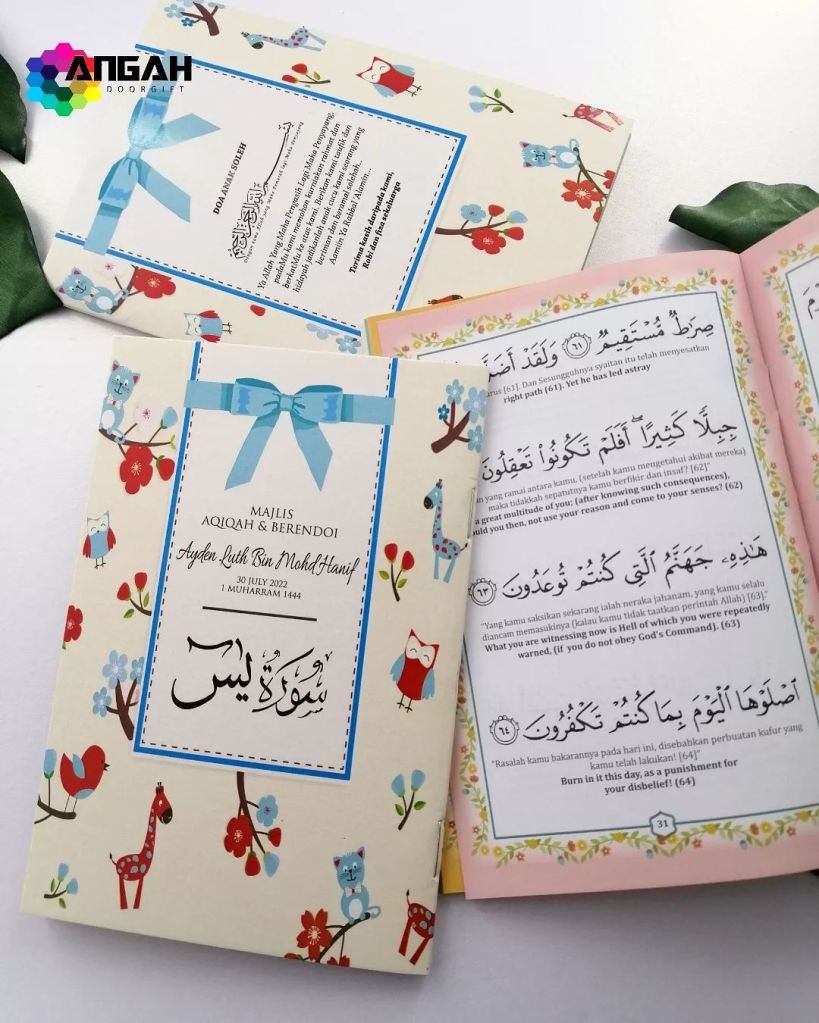 ANGAH
DOORGIFT
DOA ANAK SOLEH
بسم الله الرحمن الرحيم
Ya Allah Yang Maha Pengasih Lagi Maha Penyayang,
padaMu kami memohon kurniakan rahmat dan
berkatMu ke atas kami. Berikan kami taufik dan
hidayah jadikanlah anak cucu kami seorang yang
beriman dan beramal solehah...
Aamiin Ya Rabbal' Alamin...
Terima kasih daripada kami,
Robi dan faza sekeluarga
MAJLIS
AQIQAH & BERENDOI
Ayden Luth Bin Mohd Hanif
30 JULY 2022
1 MUHARRAM 1444
سورة يس
صِرَٰطٌ مُّسْتَقِيمٌ ٦١ وَلَقَدْ أَضَلَّ
arus [61]. Dan Sesungguhnya syaitan itu telah menyesatkan
right path (61). Yet he has led astray
جِبِلًّا كَثِيرًا ۖ أَفَلَمْ تَكُونُوا۟ تَعْقِلُونَ
an yang ramai antara kamu, (setelah kamu mengetahui akibat mereka)
maka tidakkah sepatutnya kamu berfikir dan insaf? [62]"
a great multitude of you; (after knowing such consequences),
ould you then, not use your reason and come to your senses? (62)
هَٰذِهِۦ جَهَنَّمُ ٱلَّتِى كُنتُمْ تُوعَدُونَ ٦٣
"Yang kamu saksikan sekarang ialah neraka jahanam, yang kamu selalu
diancam memasukinya (kalau kamu tidak taatkan perintah Allah) [63]."
What you are witnessing now is Hell of which you were repeatedly
warned, (if you do not obey God's Command). (63)
ٱصْلَوْهَا ٱلْيَوْمَ بِمَا كُنتُمْ تَكْفُرُونَ ٦٤
"Rasalah kamu bakarannya pada hari ini, disebabkan perbuatan kufur yang
kamu telah lakukan! [64]"
Burn in it this day, as a punishment for
your disbelief! (64)
31